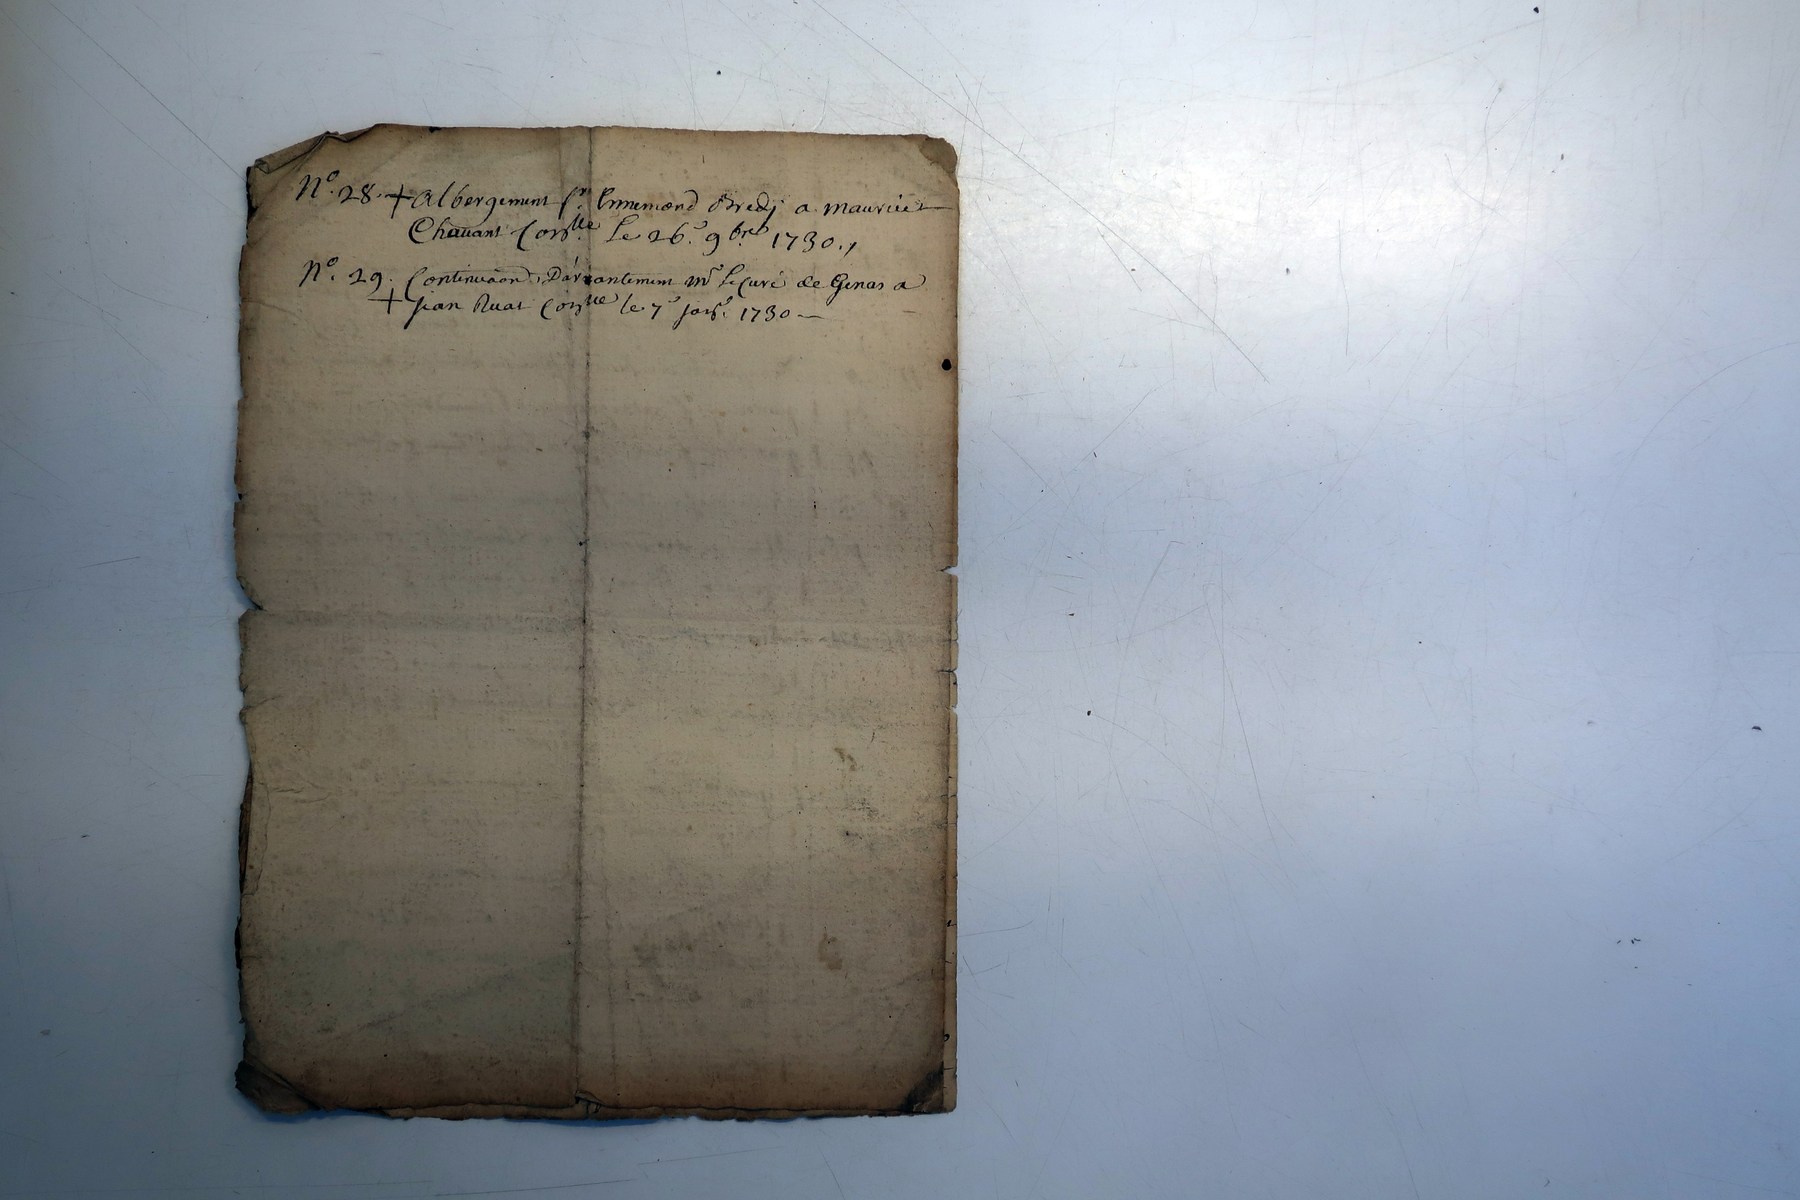 N.º 28. + Albergement Sr. Ennemond Bredy a Maurice
Chavant le 26.e 9bre 1730.
N.º 29. Continuaon D'arrantement mr le Curé de Genas a
+ Jean Ruat le 7e 1730 —